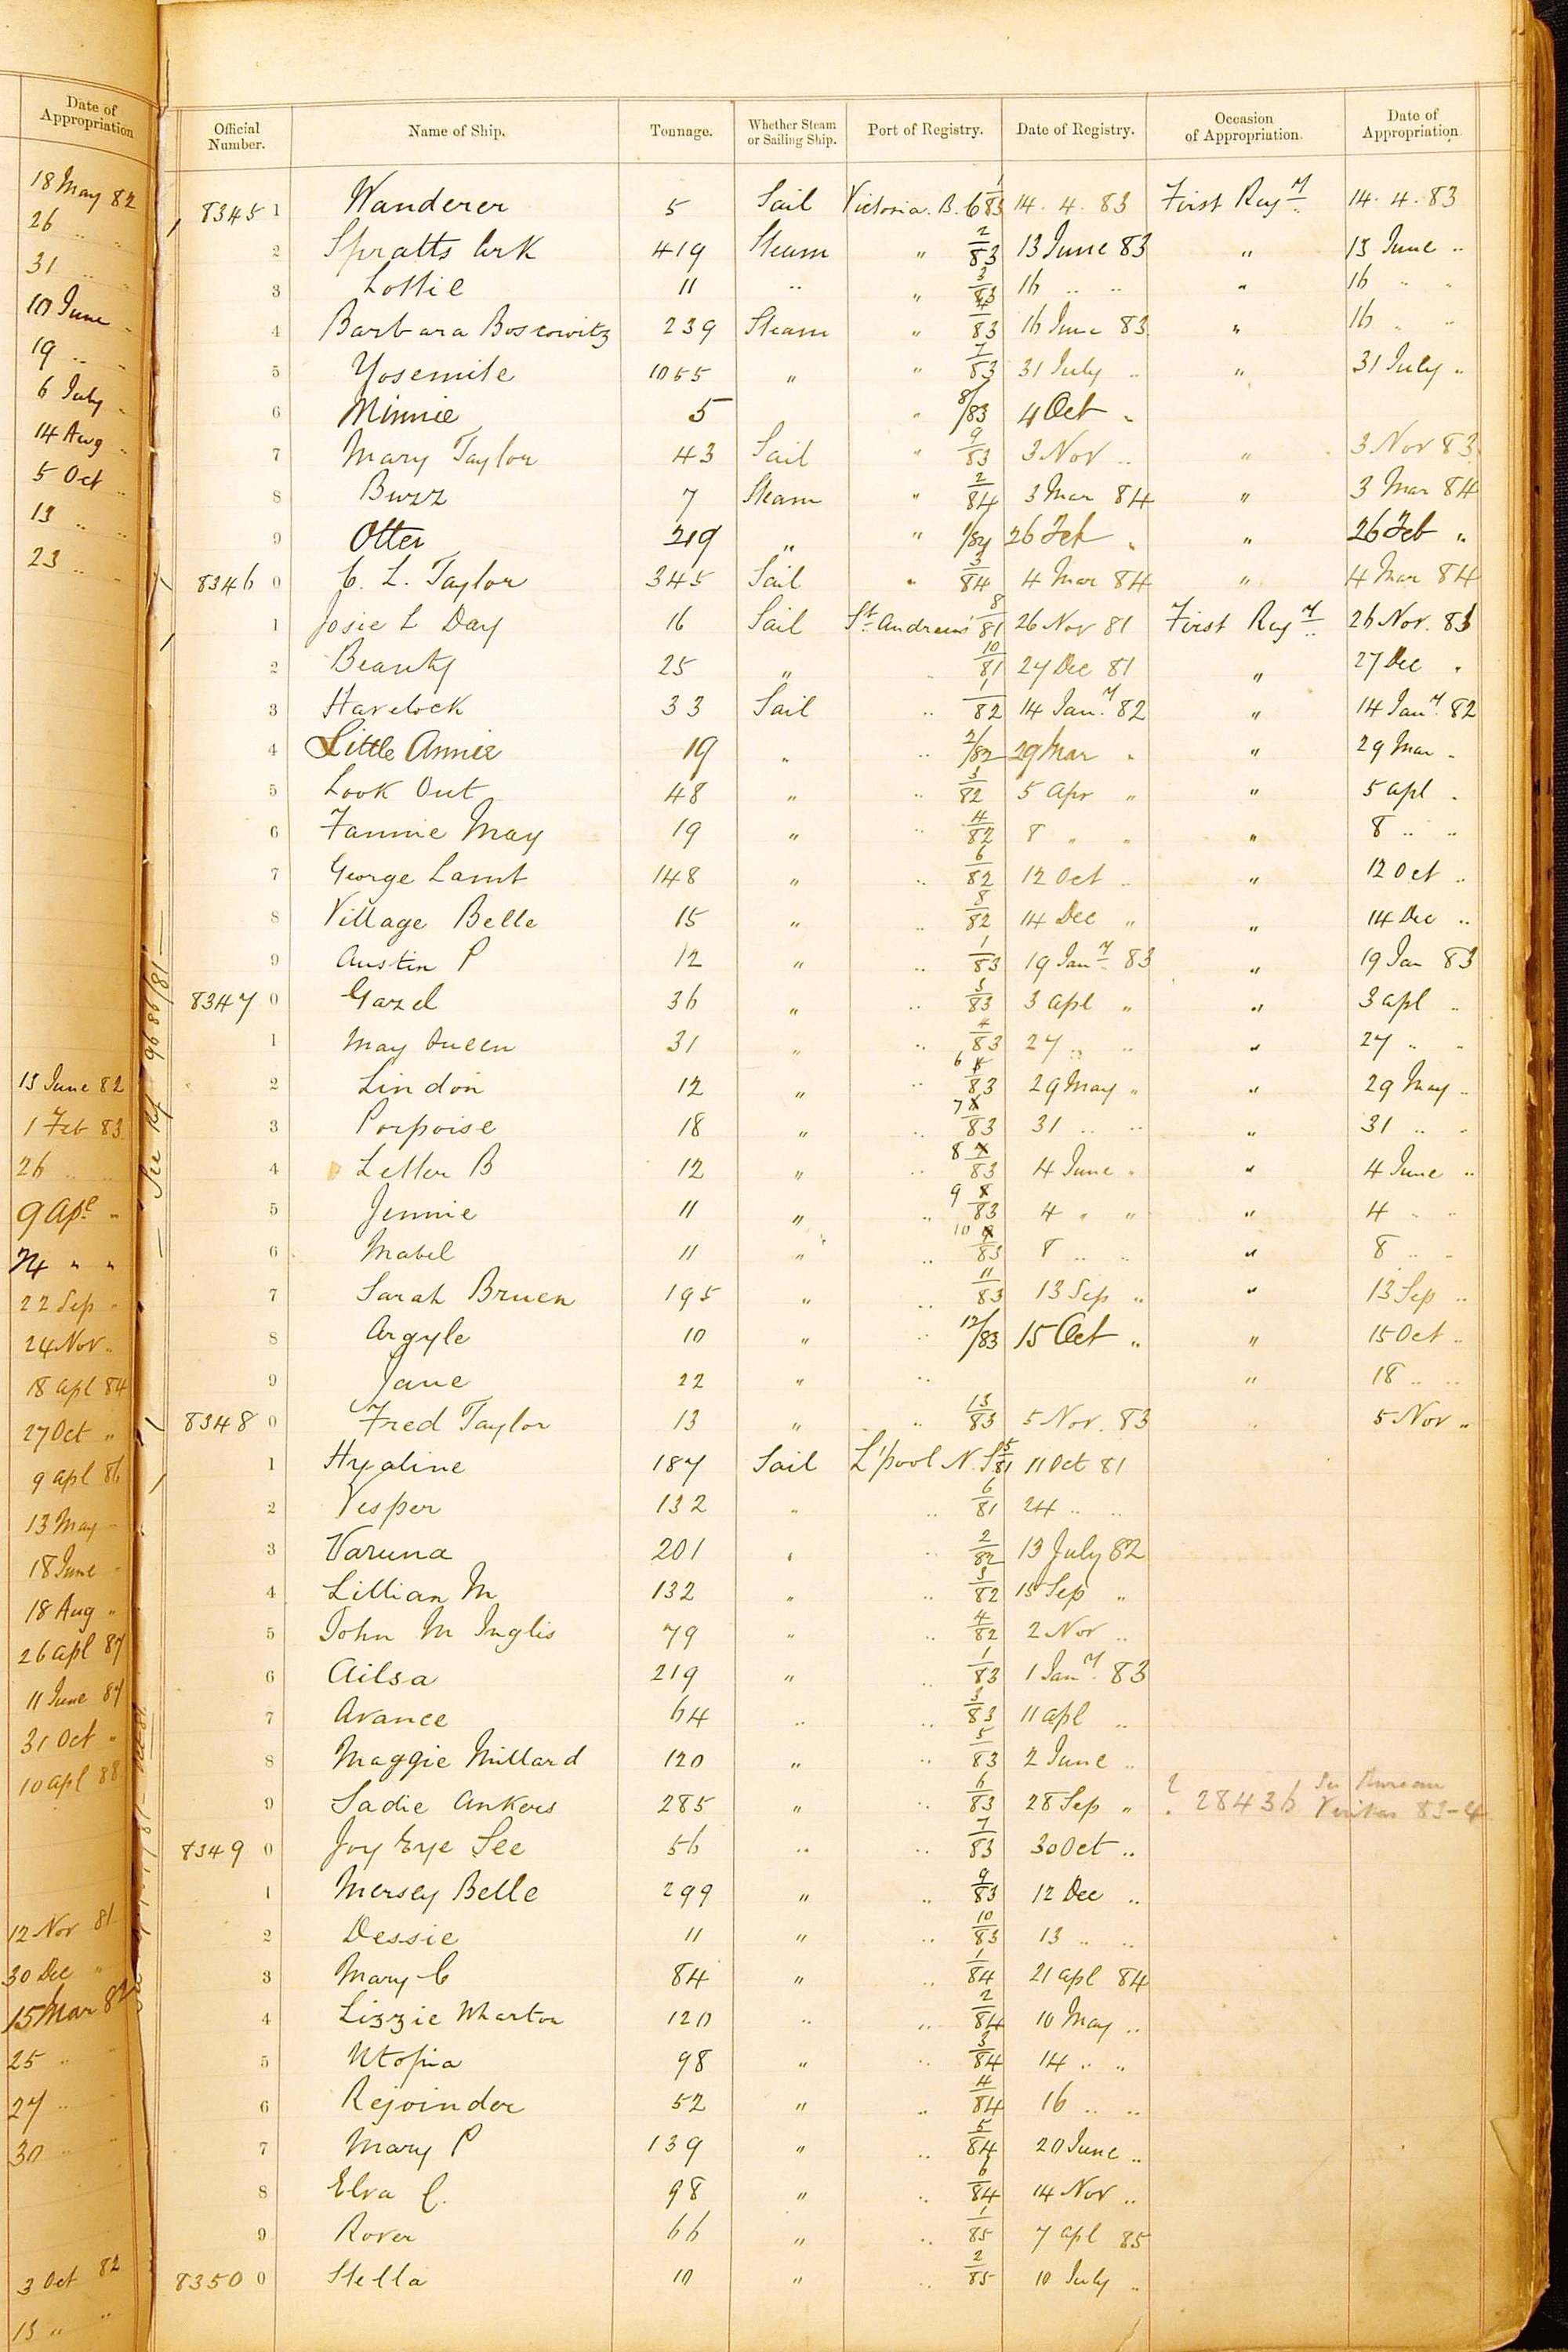 Date of Appropriation
18 May 82
26 " "
31 " "
10 June "
19 " "
6 July "
14 Aug "
5 Oct "
13 " "
23 " "
13 June 82
1 Feb 83
26 " "
9 Apl "
24 " "
22 Sep "
24 Nov "
18 Apl 84
27 Oct "
9 Apl 86
13 May "
18 June "
18 Aug "
26 Apl 87
11 June 87
31 Oct "
10 Apl 88
12 Nov 81
30 Dec "
15 Mar 82
25 " "
27 " "
30 " "
3 Oct 82
13 " "
Official Number. Name of Ship. Tonnage. Whether Steam or Sailing Ship. Port of Registry. Date of Registry. Occasion of Appropriation. Date of Appropriation.
8345 1 Wanderer 5 Sail Victoria. B.C 1/83 14. 4. 83 First Regy 14. 4. 83
2 Spratts Ark 419 Steam " 2/83 13 June 83 " 13 June "
3 Lottie 11 " " 3/83 16 " " " 16 " "
4 Barbara Boscowitz 239 Steam " 4/83 16 June 83 " 16 " "
5 Yosemite 1055 " " 7/83 31 July " " 31 July "
6 Minnie 5 " 8/83 4 Oct "
7 Mary Taylor 43 Sail " 9/83 3 Nov " " 3 Nov 83
8 Buzz 7 Steam " 2/84 3 Mar 84 " 3 Mar 84
9 Otter 219 " " 1/84 26 Feb " " 26 Feb "
8346 0 C. L. Taylor 345 Sail " 3/84 4 Mar 84 " 4 Mar 84
1 Josie L Day 16 Sail St Andrews 8/81 26 Nov 81 First Regy 26 Nov. 83
2 Beauty 25 " " 10/81 27 Dec 81 " 27 Dec "
3 Havelock 33 Sail " 1/82 14 Jany 82 " 14 Jany 82
4 Little Annie 19 " " 2/82 29 Mar " " 29 Mar "
5 Look Out 48 " " 3/82 5 Apr " " 5 Apl "
6 Fannie May 19 " " 4/82 8 " " " 8 " "
7 George Lamt 148 " " 6/82 12 Oct " " 12 Oct "
8 Village Belle 15 " " 8/82 14 Dec " " 14 Dec "
9 Austin P 12 " " 1/83 19 Jany 83 " 19 Jan 83
8347 0 Gazel 36 " " 3/83 3 Apl " " 3 Apl "
1 May Queen 31 " " 4/83 27 " " " 27 " "
2 Lindon 12 " " 6/83 29 May " " 29 May "
3 Porpoise 18 " " 7/83 31 " " " 31 " "
4 Letter B 12 " " 8/83 4 June " " 4 June "
5 Jennie 11 " " 9/83 4 " " " 4 " "
6 Mabel 11 " " 10/83 8 " " " 8 " "
7 Sarah Bruen 195 " " 11/83 13 Sep " " 13 Sep "
8 Argyle 10 " " 12/83 15 Oct " " 15 Oct "
9 Jane 22 " " " 18 " "
8348 0 Fred Taylor 13 " " 13/83 5 Nov. 83 " 5 Nov "
1 Hyaline 187 Sail L'pool N.S 5/81 11 Oct 81
2 Vesper 132 " " 6/81 24 " "
3 Varuna 201 " " 2/82 13 July 82
4 Lillian M 132 " " 3/82 15 Sep "
5 John M Inglis 79 " " 4/82 2 Nov "
6 Ailsa 219 " " 1/83 1 Jany 83
7 Avance 64 " " 3/83 11 Apl "
8 Maggie Millard 120 " " 5/83 2 June "
9 Sadie Ankers 285 " " 6/83 28 Sep " ? 28436 See Bureau Veritas 83-4
8349 0 Joy Eye See 56 " " 7/83 30 Oct "
1 Mersey Belle 299 " " 9/83 12 Dec "
2 Dessie 11 " " 10/83 13 " "
3 Mary C 84 " " 1/84 21 Apl 84
4 Lizzie Wharton 120 " " 2/84 10 May "
5 Utopia 98 " " 3/84 14 " "
6 Rejoinder 52 " " 4/84 16 " "
7 Mary P 139 " " 5/84 20 June "
8 Elva C. 98 " " 6/84 14 Nov "
9 Rover 66 " " 1/85 7 Apl 85
8350 0 Stella 10 " " 2/85 10 July "